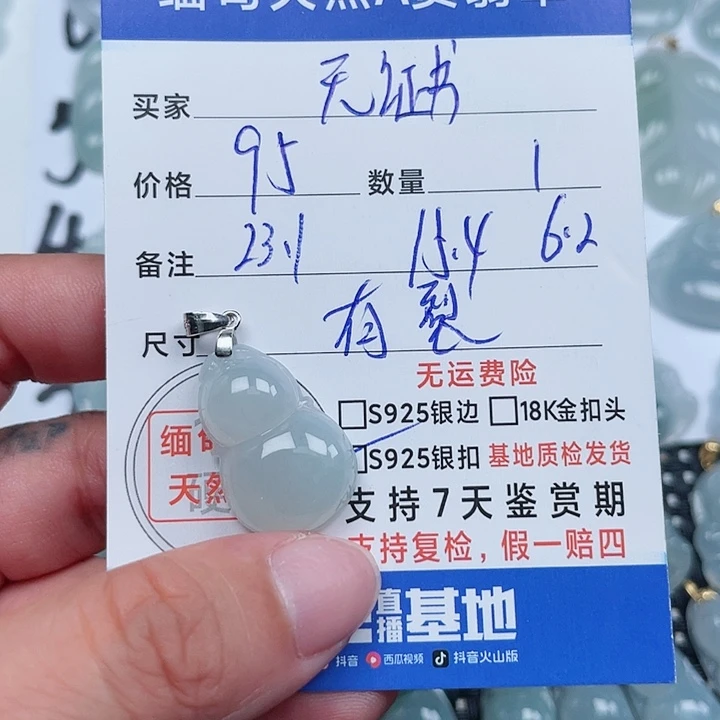 缅甸天然A货翡翠
买家 无证书
价格 95 数量 1
备注 23.1 15.4 6.2
尺寸 有裂
无运费险
S925银边 18K金扣头
S925银扣 基地质检发货
支持7天鉴赏期
支持复检，假一赔四
缅甸
天然
直播基地
抖音 西瓜视频 抖音火山版